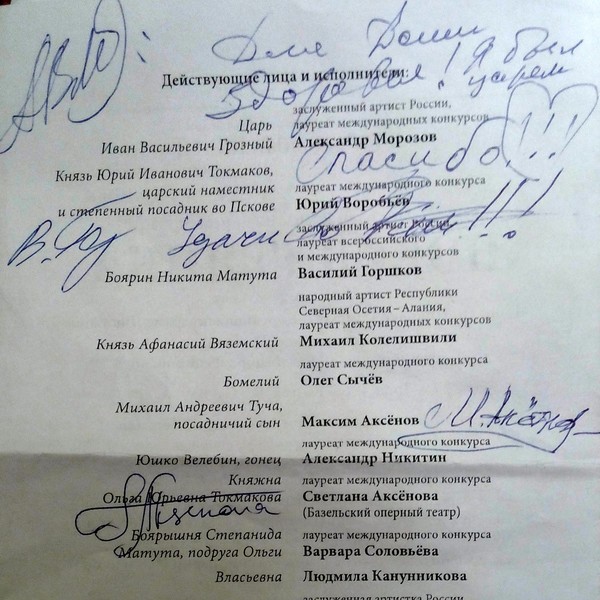 Для Дани
Действующие лица и исполнители:
Здоровья! Я был царём
заслуженный артист России,
Царь лауреат международных конкурсов
Иван Васильевич Грозный Александр Морозов
Спасибо!!!
Князь Юрий Иванович Токмаков,
царский наместник лауреат международного конкурса
и степенный посадник во Пскове Юрий Воробьёв
Удачи
заслуженный артист России
лауреат всероссийского
и международного конкурсов
Боярин Никита Матута Василий Горшков
народный артист Республики
Северная Осетия – Алания,
лауреат международных конкурсов
Князь Афанасий Вяземский Михаил Колелишвили
лауреат международного конкурса
Бомелий Олег Сычёв
Михаил Андреевич Туча,
посадничий сын Максим Аксёнов М. Аксёнов
лауреат международного конкурса
Юшко Велебин, гонец Александр Никитин
Княжна лауреат международного конкурса
Ольга Юрьевна Токмакова Светлана Аксёнова
(Базельский оперный театр)
Боярышня Степанида лауреат международного конкурса
Матута, подруга Ольги Варвара Соловьёва
Власьевна Людмила Канунникова
заслуженная артистка России